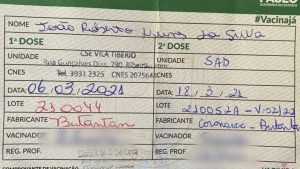 PAULO
#Vacinajá
Nome: João Roberto Nunes da Silva
1ª DOSE 2ª DOSE
UNIDADE CSE VILA TIBERIO UNIDADE SAD
Rua Gonçalves Dias, 790 RIBEIRÃO
CNES Tel. 3931 2325 CNES CNES
DATA: 06/03/2021 DATA: 18/3/21
LOTE 210044 LOTE 210052A
FABRICANTE Butantan FABRICANTE Coronavac - Butantan
VACINADOR VACINADOR
REG. PROF. REG. PROF.
COMPROVANTE DE VACINAÇÃO